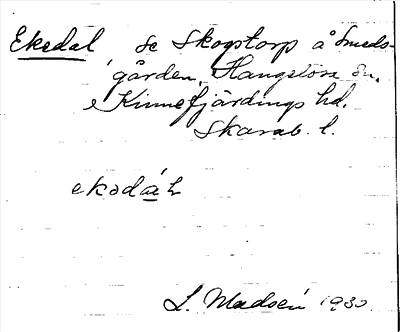 Ekedal se Skogstorp å Smeds-
gården, Hangelösa sn,
Kinnefjärdings hd.
Skarab. l.
ekədáh
L. Madsén 1930